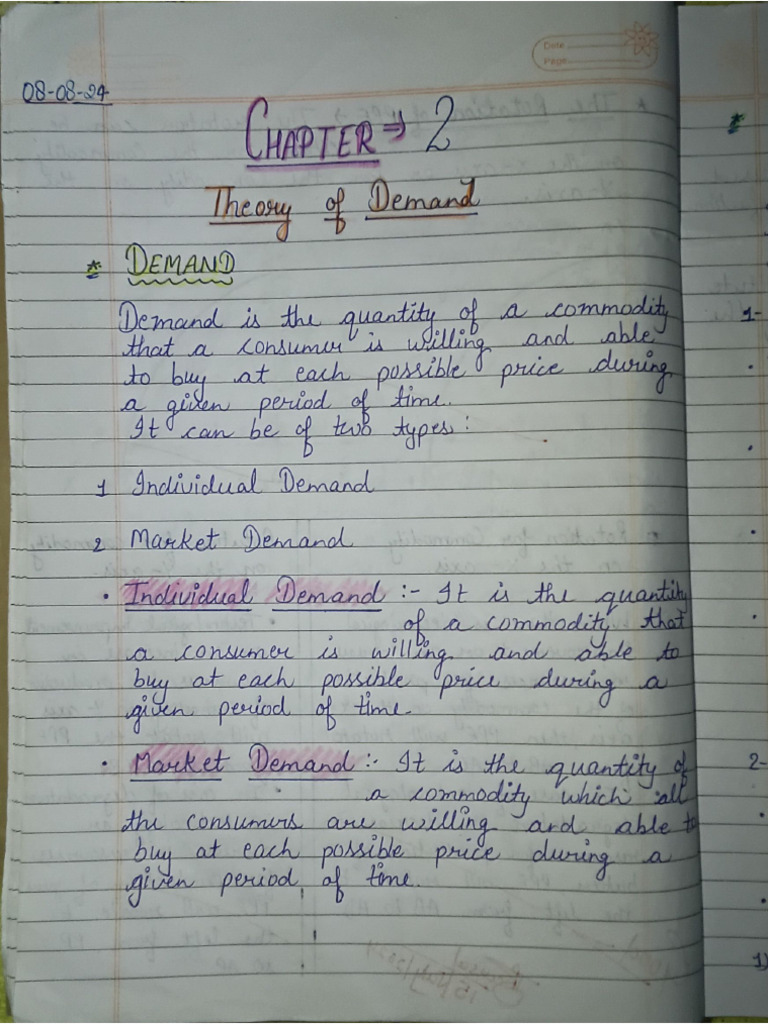 Date
Page
08-08-24
CHAPTER ⇒ 2
Theory of Demand
* DEMAND
Demand is the quantity of a commodity
that a consumer is willing and able
to buy at each possible price during
a given period of time.
It can be of two types:
1 Individual Demand
2 Market Demand
• Individual Demand :- It is the quantity
of a commodity that
a consumer is willing and able to
buy at each possible price during a
given period of time.
• Market Demand :- It is the quantity of
a commodity which all
the consumers are willing and able to
buy at each possible price during a
given period of time.
*
1-
2-
1)